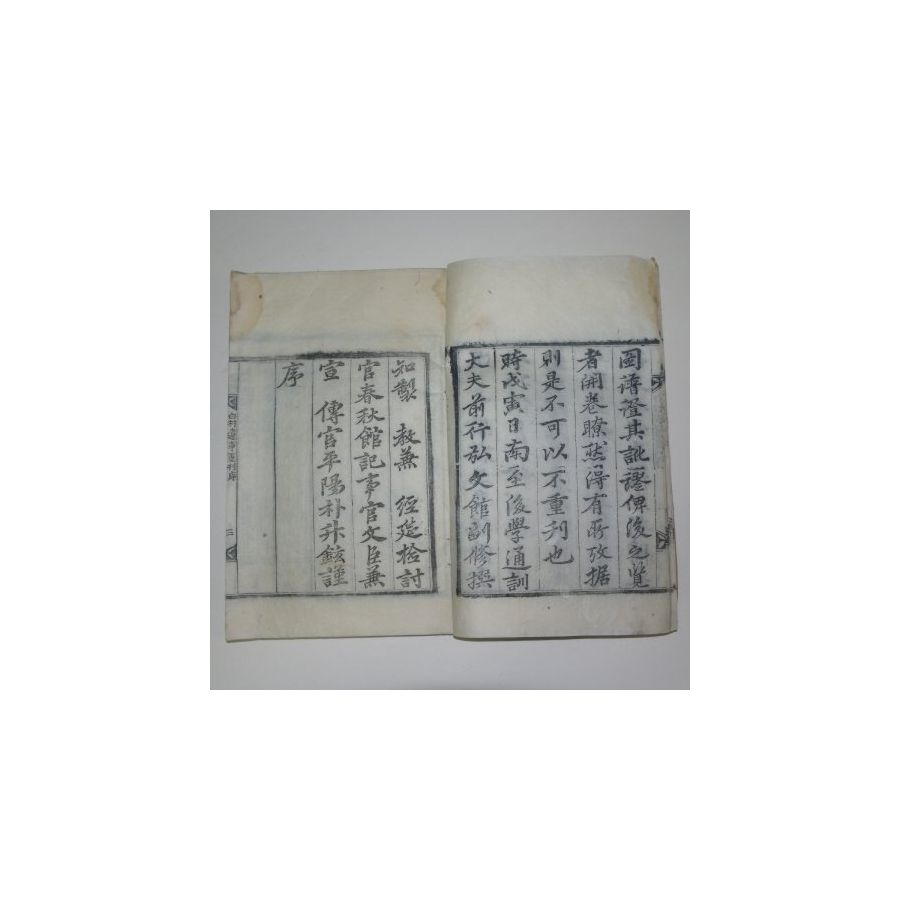 圖譜澄其訛謬俾後之覽
者開卷瞭然得有所攷据
則是不可以不重刋也
時戊寅日南至後學通訓
大夫前行弘文館副修撰
知製 敎兼 經筵檢討
官春秋館記事官文臣兼
宣 傳官平陽朴升鉉謹
序